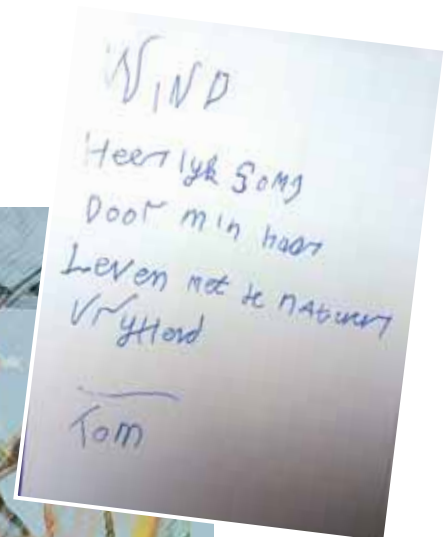 WIND
Heerlyk soms
Door m'n haar
Leven met de natuur
VryHeid
Tom